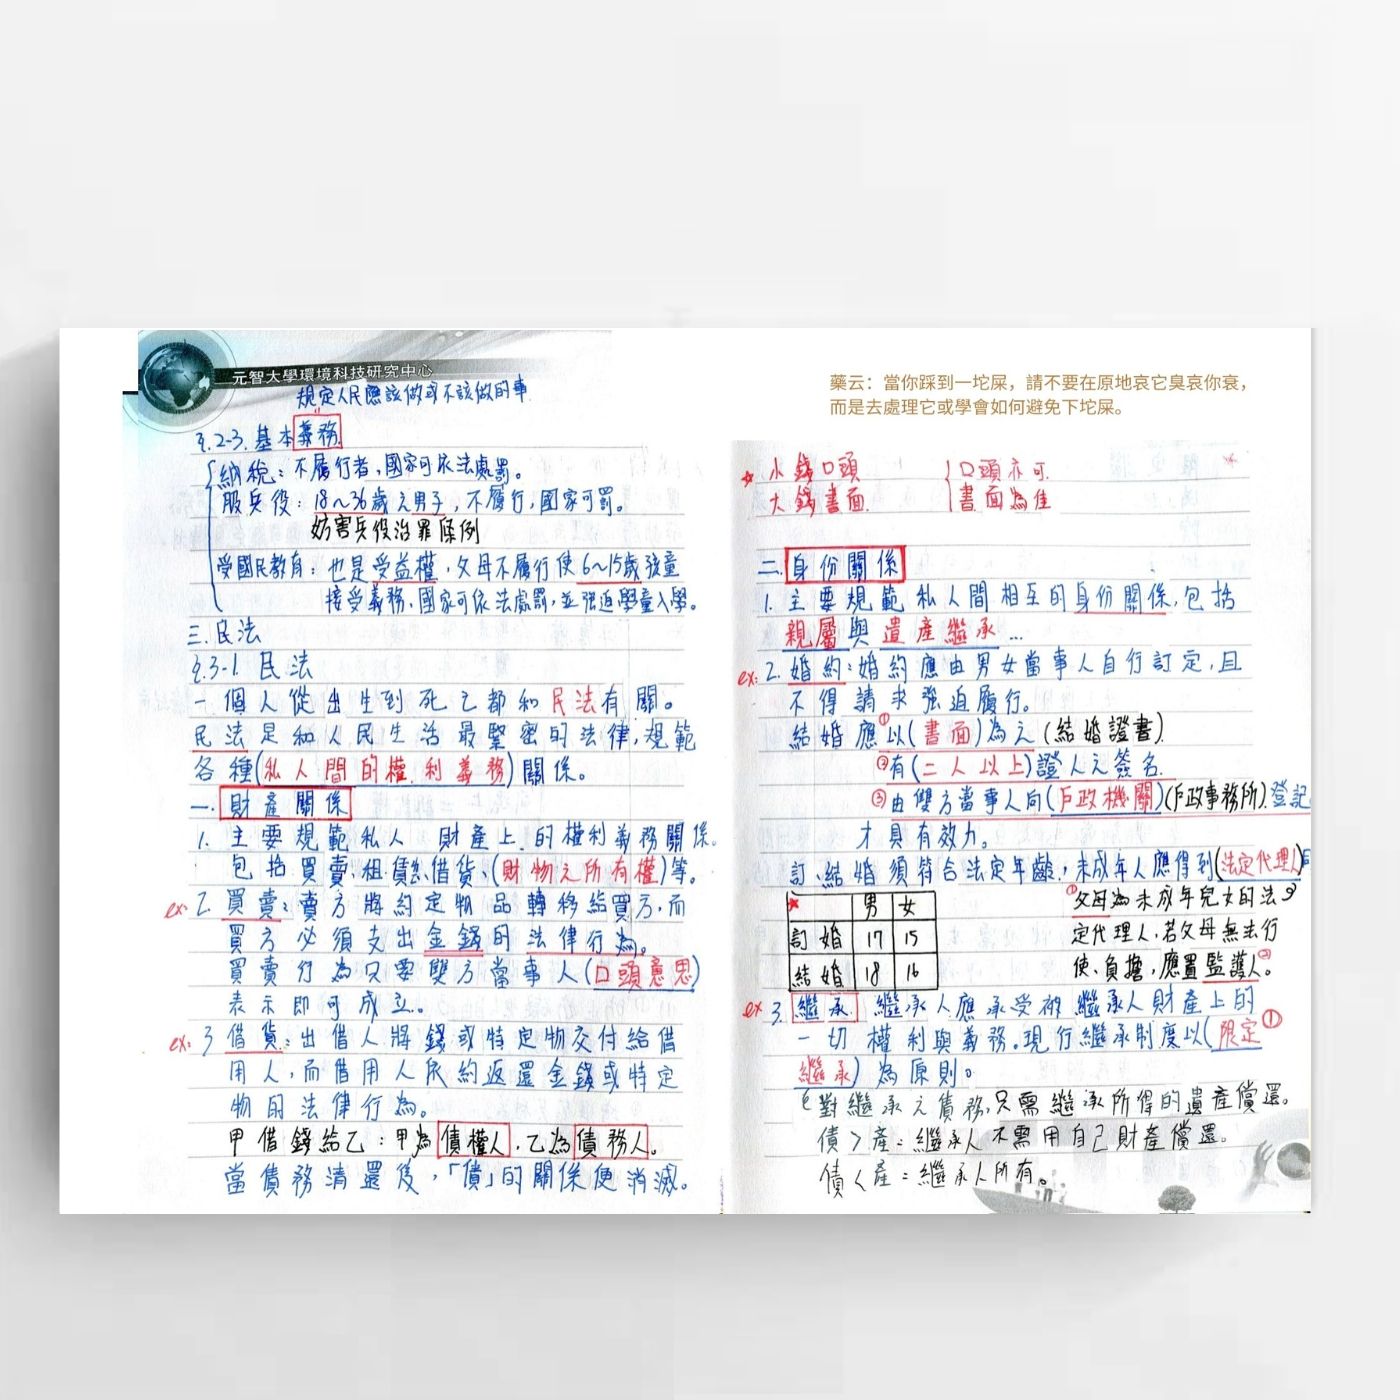 元智大學環境科技研究中心
規定人民應該做或不該做的事.
§.2-3.基本義務.
納稅：不履行者,國家可依法處罰。
服兵役：18～36歲之男子,不履行,國家可罰。
妨害兵役治罪條例
受國民教育：也是受益權,父母不履行使6～15歲孩童
接受義務,國家可依法處罰,並強迫學童入學。
三.民法
§.3-1.民法
一個人從出生到死亡都和民法有關。
民法是和人民生活最緊密的法律,規範
各種(私人間的權.利義務)關係。
一.財產關係
1.主要規範私人 財產上.的權利義務關係。
包括買賣、租賃、借貸、(財物之所有權)等。
ex:2.買賣：賣方將約定物品轉移給買方,而
買方必須支出金錢的法律行為。
買賣行為只要雙方當事人(口頭意思)
表示即可成立。
ex:3借貸：出借人將錢或特定物交付給借
用人,而借用人依約返還金錢或特定
物的法律行為。
甲借錢給乙：甲為債權人.乙為債務人。
當債務清還後,「債」的關係便消滅。
藥云：當你踩到一坨屎，請不要在原地哀它臭哀你衰，
而是去處理它或學會如何避免下坨屎。
★小錢口頭 口頭亦可.
大錢書面. 書面為佳
二.身份關係
1.主要規範私人間相互的身份關係,包括
親屬與遺產繼承...
ex:2.婚約：婚約應由男女當事人自行訂定,且
不得請求強迫履行。
結婚應①以(書面)為之(結婚證書).
②有(二人以上)證人之簽名.
③由雙方當事人向(戶政機關)(戶政事務所).登記
才具有效力。
訂、結婚須符合法定年齡,未成年人應得到(法定代理人)同
★ 男 女
訂婚 17 15
結婚 18 16
①父母為未成年兒女的法
定代理人,若父母無法行
使、負擔,應置監護人。②
ex 3.繼承.繼承人應承受被繼承人財產上的
一切權利與義務。現行繼承制度以(限定①
繼承)為原則。
對繼承之債務,只需繼承所得的遺產償還。
債＞產：繼承人不需用自己財產償還。
債＜產：繼承人所有。